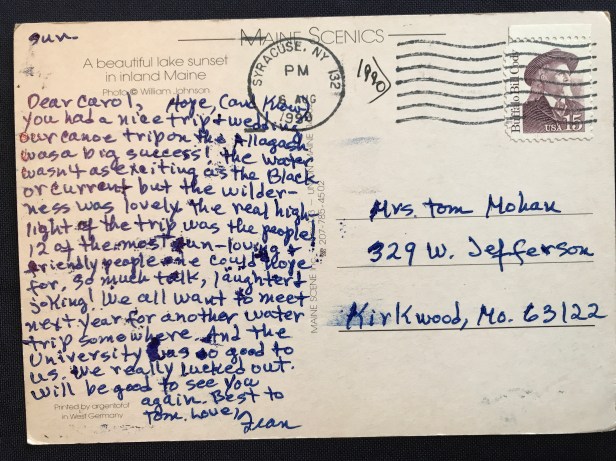 Sun-
MAINE SCENICS
A beautiful lake sunset
in inland Maine
Photo © William Johnson
SYRACUSE, NY 132
PM
6 AUG
1990
(1990)
Buffalo Bill Cody
USA 15
Dear Carol, Hope, Card &
you had a nice trip & wedding
our canoe trip on the Allagash
was a big success! the water
wasn't as exciting as the Black
or current but the wilder-
ness was lovely. the real high
light of the trip was the people!
12 of the most fun-loving &
friendly people one could hope
for, so much talk, laughter &
joking! We all want to meet
next year for another water
trip somewhere. And the
University was so good to
us. we really lucked out.
will be good to see you
again. Best to
Tom. Love,
Jean
Printed by argentofot
in West Germany
MAINE SCENE INC. UNION, MAINE
207-785-4502
Mrs. Tom Mohan
329 W. Jefferson
Kirkwood, Mo. 63122